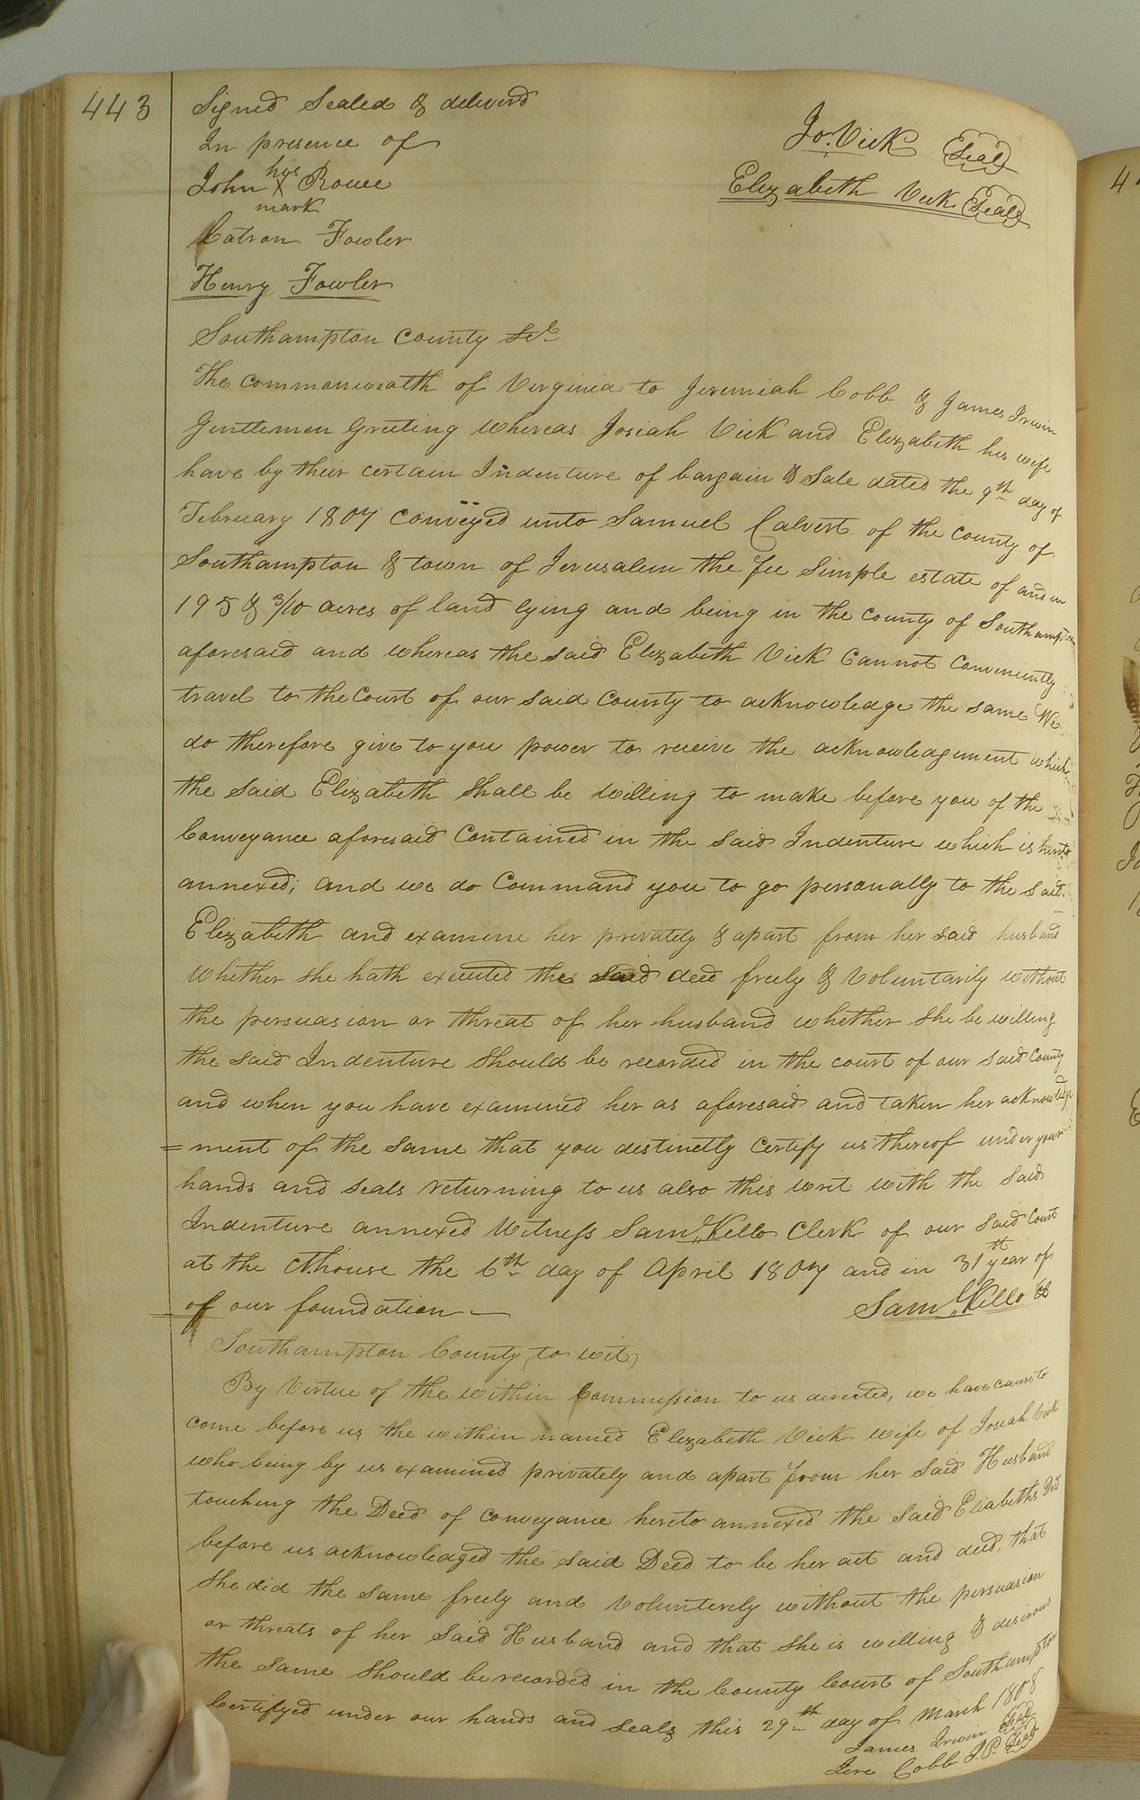 443
Signed Sealed & deliverd
In presence of
Jo. Vick Seal
his
John X Rowe
mark
Elizabeth Vick Seal
Catron Fowler
Henry Fowler
Southampton County Sct.
The commonweath of Virginia to Jeremiah Cobb & James Irwin
Gentlemen Greeting whereas Josiah Vick and Elizabeth his wife
have by their certain Indenture of bargain & Sale dated the 9th day of
February 1807 conveyed unto Samuel Calvert of the County of
Southampton & town of Jerusalem the fee Simple estate of and in
195 & 3/10 acres of land lying and being in the county of Southampton
aforesaid and whereas the said Elizabeth Vick Cannot Conveniently
travel to the Court of our said County to acknowledge the same We
do therefore give to you power to receive the acknowledgement which
the said Elizabeth Shall be willing to make before you of the
Conveyance aforesaid Contained in the said Indenture which is hereto
annexed; and we do Command you to go personally to the said
Elizabeth and examine her privately & apart from her said husband
Whether she hath executed the said deed freely & Voluntarily without
the persuasion or threat of her husband whether She be willing
the said Indenture Should be recorded in the court of our said County
and when you have examined her as aforesaid and taken her acknowledge
=ment of the Same that you distinctly Certify us thereof under your
hands and seals returning to us also this writ with the said
Indenture annexed Witness Saml. Kello Clerk of our said Court
at the Ct.house the 6th day of April 1807 and in 31st year of
of our foundation —
Saml. Kello
Southampton County, to wit,
By Virtue of the within Commission to us directed, we have cause to
come before us the within named Elizabeth Vick wife of Josiah Vick
who being by us examined privately and apart from her Said Husband
touching the Deed of conveyance hereto annexed the said Eliabeths Did
before us acknowledged the said Deed to be her act and deed, that
She did the same freely and Volunterily without the persuasion
or threats of her Said Husband and that She is willing & desirous
the same Should be recorded in the County Court of Southampton
Certifyed under our hands and seals this 29th day of March 1808
James Irwin Seal
Jere Cobb J.P. Seal